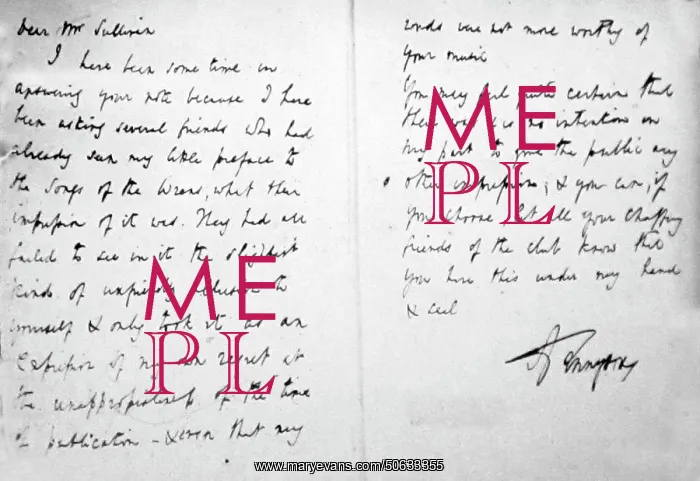 Dear Mr Sullivan
I have been some time in
answering your note because I have
been asking several friends who had
already seen my little preface to
the Songs of the Wrens, what their
impression of it was. They had all
failed to see in it the slightest
kind of unfriendly allusion to
yourself & only took it as an
expression of my own regret at
the unappropriateness of the time
of publication - & even that my
words were not more worthy of
your music
You may feel quite certain that
there was & is no intention on
my part to give the public any
other impression; & you can, if
you choose let all your chaffing
friends of the club know that
you have this under my hand
& seal
A Tennyson
ME
PL
ME
PL
www.maryevans.com/50633355